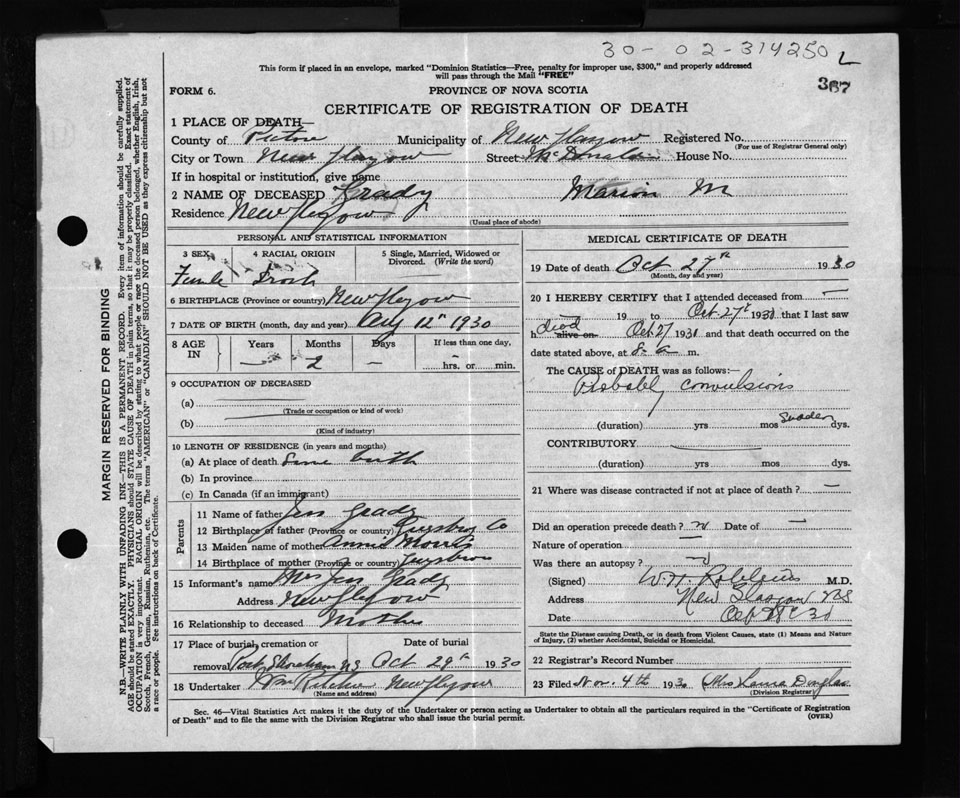 30-02-314250 L
This form if placed in an envelope, marked "Dominion Statistics—Free, penalty for improper use, $300," and properly addressed
will pass through the Mail "FREE"
367
FORM 6.
PROVINCE OF NOVA SCOTIA
CERTIFICATE OF REGISTRATION OF DEATH
1 PLACE OF DEATH—
County of Pictou Municipality of New Glasgow Registered No.
(For use of Registrar General only)
City or Town New Glasgow Street McDonald House No.
If in hospital or institution, give name
2 NAME OF DECEASED Grady Marion M
Residence New Glasgow
(Usual place of abode)
PERSONAL AND STATISTICAL INFORMATION
3 SEX
4 RACIAL ORIGIN
5 Single, Married, Widowed or
Divorced. (Write the word)
Female Irish
6 BIRTHPLACE (Province or country) New Glasgow
7 DATE OF BIRTH (month, day and year) Aug 12th 1930
8 AGE IN Years Months Days If less than one day,
— 2 hrs. or min.
9 OCCUPATION OF DECEASED
(a)
(Trade or occupation or kind of work)
(b)
(Kind of industry)
10 LENGTH OF RESIDENCE (in years and months)
(a) At place of death Since birth
(b) In province
(c) In Canada (if an immigrant)
Parents
11 Name of father Jess Grady
12 Birthplace of father (Province or country) Guysboro Co
13 Maiden name of mother Annie Morris
14 Birthplace of mother (Province or country) Guysboro
15 Informant's name Mrs Jess Grady
Address New Glasgow
16 Relationship to deceased Mother
17 Place of burial, cremation or Date of burial
removal Port Shoreham NS Oct 29th 1930
18 Undertaker New Glasgow
(Name and address)
MEDICAL CERTIFICATE OF DEATH
19 Date of death Oct 27th 1930
(Month, day and year)
20 I HEREBY CERTIFY that I attended deceased from —
19 to Oct 27th 1930 that I last saw
h dead alive on Oct 27 1930 and that death occurred on the
date stated above, at 8. a m.
The CAUSE of DEATH was as follows:—
Probably convulsions
(duration) yrs mos Sudden dys.
CONTRIBUTORY
(duration) yrs mos dys.
21 Where was disease contracted if not at place of death? —
Did an operation precede death? Date of —
Nature of operation —
Was there an autopsy?
(Signed) W.H. M.D.
Address New Glasgow NS
Date Oct 28th 30
State the Disease causing Death, or in death from Violent Causes, state (1) Means and Nature
of Injury, (2) whether Accidental, Suicidal or Homicidal.
22 Registrar's Record Number
23 Filed Nov. 4th 1930 Mrs Douglas
(Division Registrar)
Sec. 46—Vital Statistics Act makes it the duty of the Undertaker or person acting as Undertaker to obtain all the particulars required in the "Certificate of Registration
of Death" and to file the same with the Division Registrar who shall issue the burial permit.
(OVER)
MARGIN RESERVED FOR BINDING
N.B.—WRITE PLAINLY WITH UNFADING INK—THIS IS A PERMANENT RECORD. Every item of information should be carefully supplied.
AGE should be stated EXACTLY. PHYSICIANS should STATE CAUSE OF DEATH in plain terms, so that it may be properly classified. Exact statement of
OCCUPATION is very important. RACIAL ORIGIN will be described by stating to what people or race the deceased person belonged, whether English, Irish,
Scotch, French, German, Russian, Ruthenian, etc. The terms "AMERICAN" or "CANADIAN" SHOULD NOT BE USED as they express citizenship but not
a race or people. See instructions on back of Certificate.